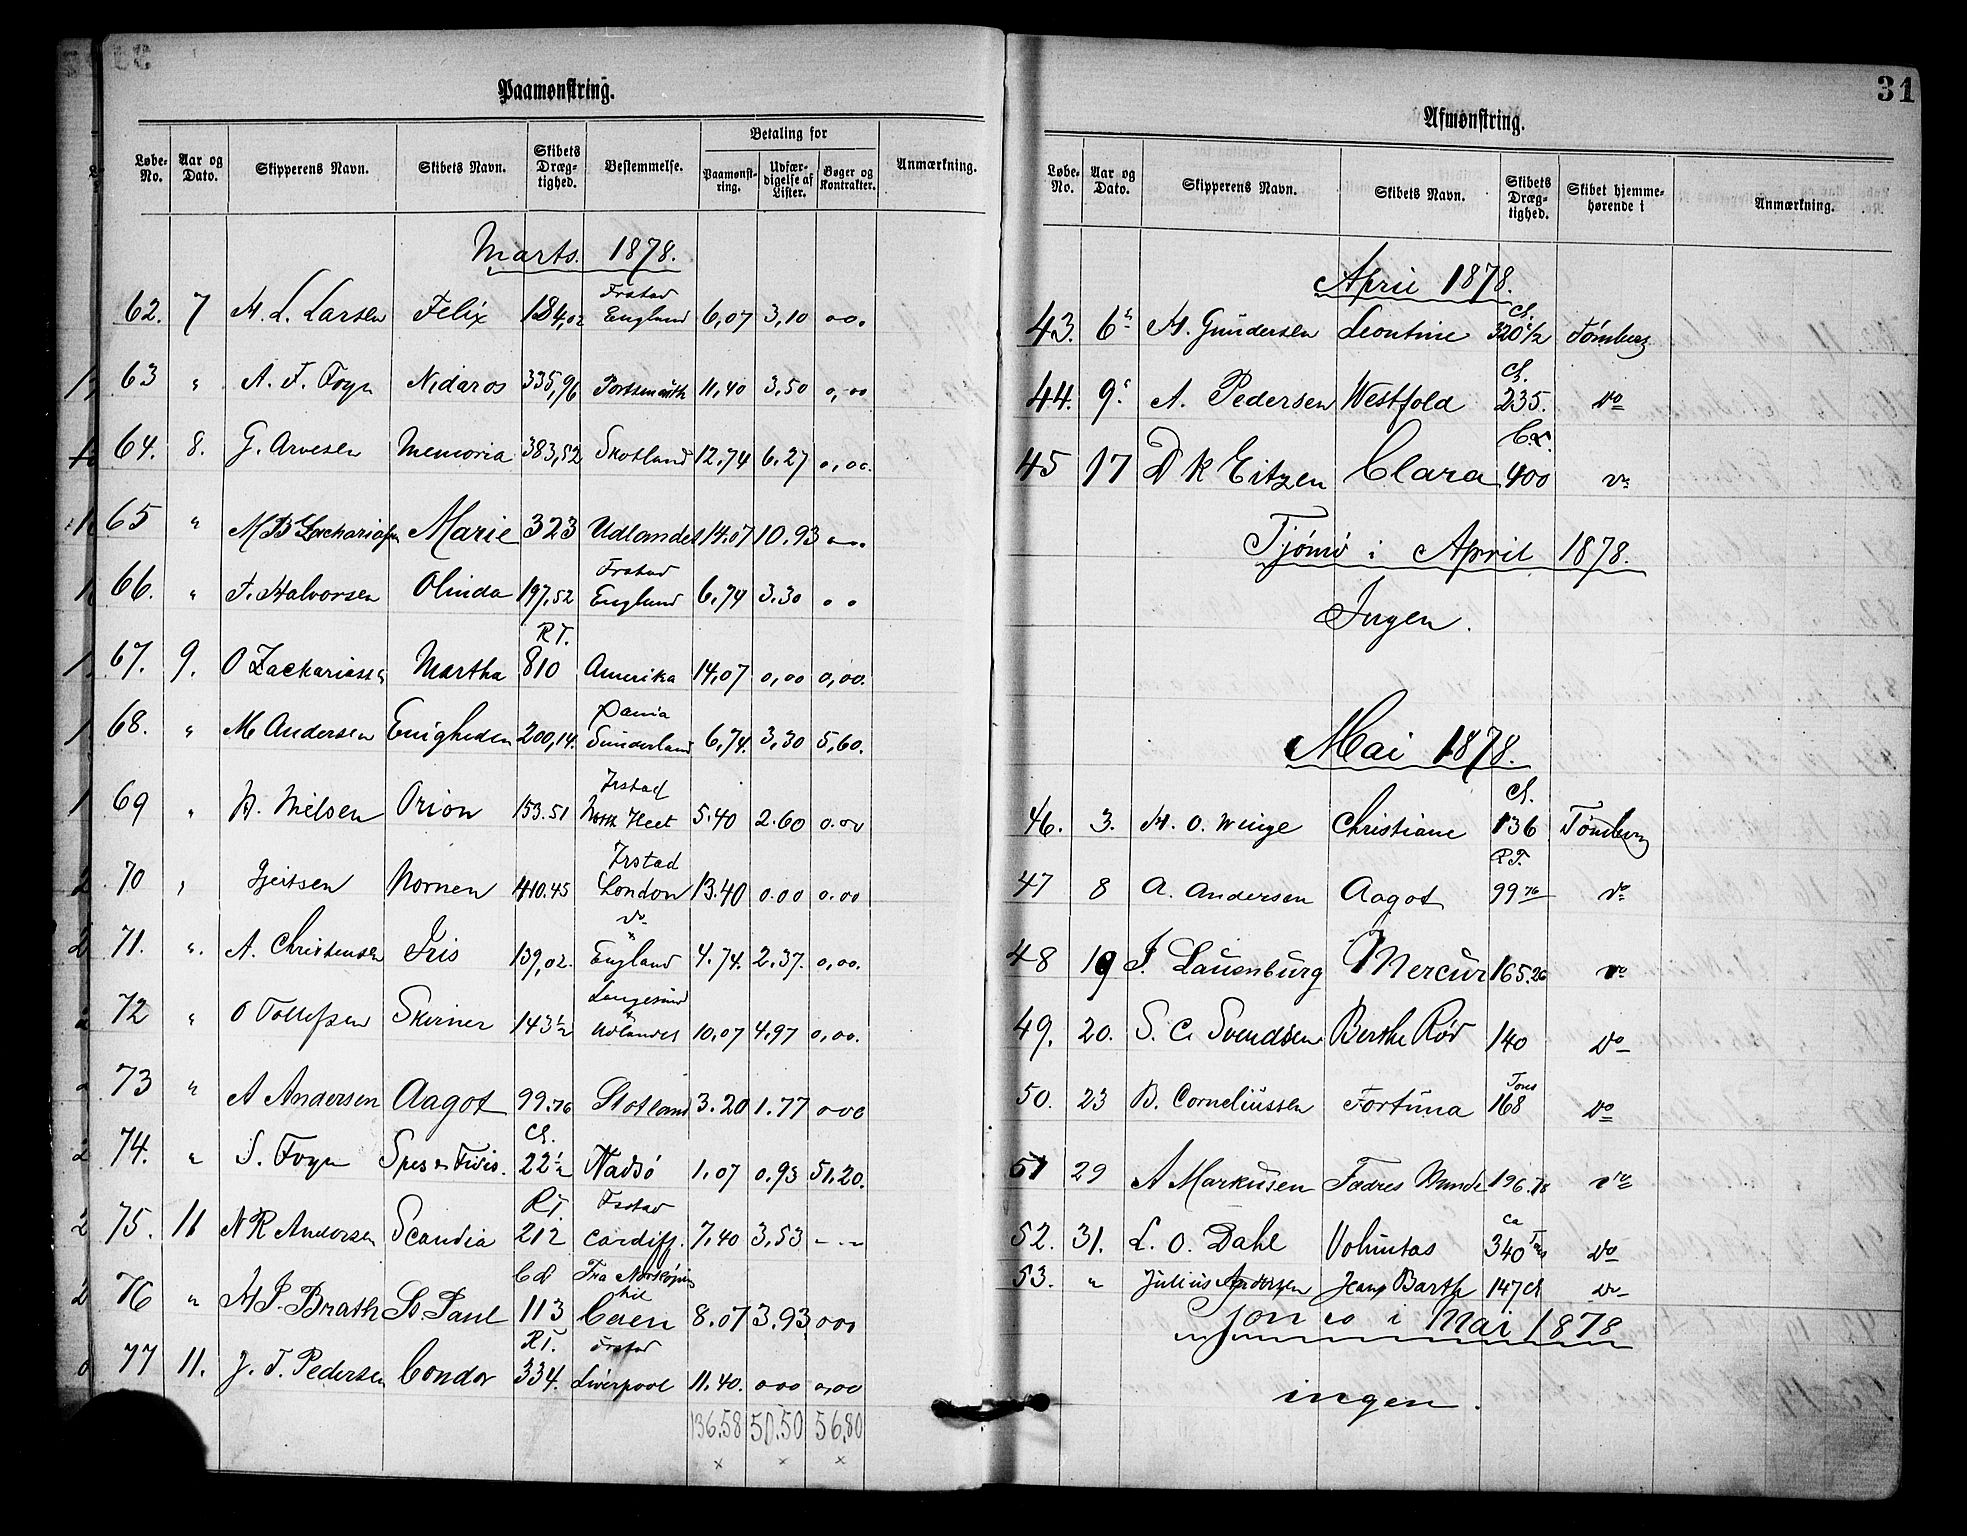 31
Paamønstring.
Løbe-No. Aar og Dato. Skipperens Navn. Skibets Navn. Skibets Drægtighed. Bestemmelse. Betaling for Paamønstring. Udfærdigelse af Lister. Bøger og Kontrakter. Anmærkning.
Marts. 1878.
62. 7 M. L. Larsen Felix 184,02 Frstad England 6,07 3,10 00.
63 " A. F. Foyn Nidaros 335,96 Portsmouth 11,40 3,50 0,00
64. 8. G. Arvesen Memoria 383,52 Skotland 12.74 6.27 0,00.
65 " M B Zachariassen Marie 323 Udlandet 14.07 10.93
66. " F. Halvorsen Olinda 197,52 Frstad England 6.74 3.30 0 0
67. 9. O Zachariassen Martha R T. 810 Amerika 14,07 0,00 0,00.
68. " M Andersen Enigheden 200,14. Sunderland 6,74. 3,30 5,60.
69 " N. Nielsen Orion 153.51 Frstad 5.40 2.60 0.00
70 " Gjertsen Nornen 410.45 Frstad London 13.40 0.00 0.00
71. ". A. Christensen Iris 139,02. do England 4.74. 2.37. 0,00.
72 " O Tollefsen Skirner 143 1/2 Langesund Udlandet 10,07 4,97 0,00.
73 " A Andersen Aagot 99.76 Skotland 3.20 1.77 000
74. " S. Foyn Spes & Fides. Cl. 22 1/2 Vadsø 1,07 0.93 51,20.
75. 11 N R Andersen Scandia R T. 212 Frstad Cardiff. 7,40 3,53 - . -
76 " H P. Brath St. Paul Cl 113 Fra Norrköping til Caen 8.07 3.93 000
77 11. J. F. Pedersen Condor RT. 334. Frstad Liverpool 11.40. 000 0,00
136.58 50.50 56,80
Afmønstring.
Løbe-No. Aar og Dato. Skipperens Navn. Skibets Navn. Skibets Drægtighed. Skibet hjemmehørende i Anmærkning.
April 1878.
43. 6 M. Gundersen Leontine Cl. 320 1/2 Tønsberg
44. 9. A. Pedersen Westfold Cl. 235. do
45 17 D K Eitzen Clara C.L. 400 do
Tjømø i April 1878.
Ingen.
Mai 1878.
46. 3. M. O. Winge Christiane Cl. 136 Tønsberg
47 8 A. Andersen Aagot R.T. 99 76 do
48 19 J. Lauenburg Mercur 165.26 do
49. 20. S. C. Svendsen Berthe Rød 140 do
50. 23 B. Corneliussen Fortuna Tons 168 do
51 29 A Markusen Fædres Minde 196.78 do
52. 31. L. O. Dahl Voluntas Ca 340 Tons do
53. " Julius Andersen Jean Barth 147 Cl do
Tjømø i Mai 1878
ingen.